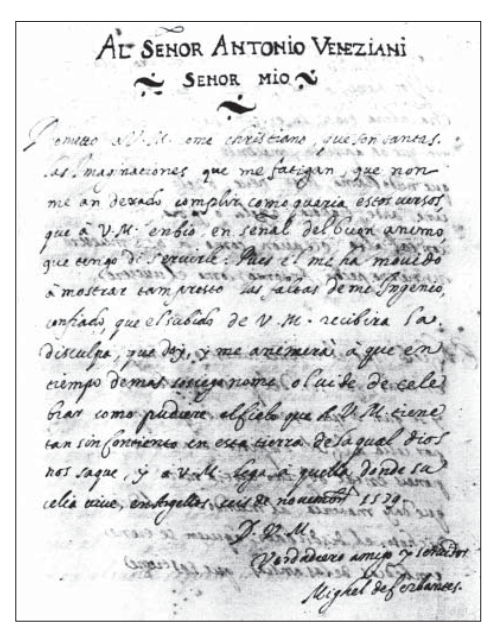 AL SENOR ANTONIO VENEZIANI
SENOR MIO
Prometto a V.M. come christiano, que son tantas.
las Imaginaciones que me fatigan, que non
me an dexado complir como queria estos versos,
que à V.M. enbio, en señal del buon animo,
que tengo di servirle. Pues el me ha movido
à mostrar tam presto las faltas de mi Ingenio,
confiado, que el subido de V.M. recibira la
disculpa, que doy, y me animerà à que en
tiempo de mas sosiego no me olvide de cele
brar como pudiere el cielo que à V.M. tiene
tan sin contiento en esta tierra de la qual dios
nos saque, y a V.M. lega à quella, donde su
celia vive, en Argel los, seis de noviembre 1579
D. V. M.
Verdadero amigo y servidor
Mighel de Cerbantes.